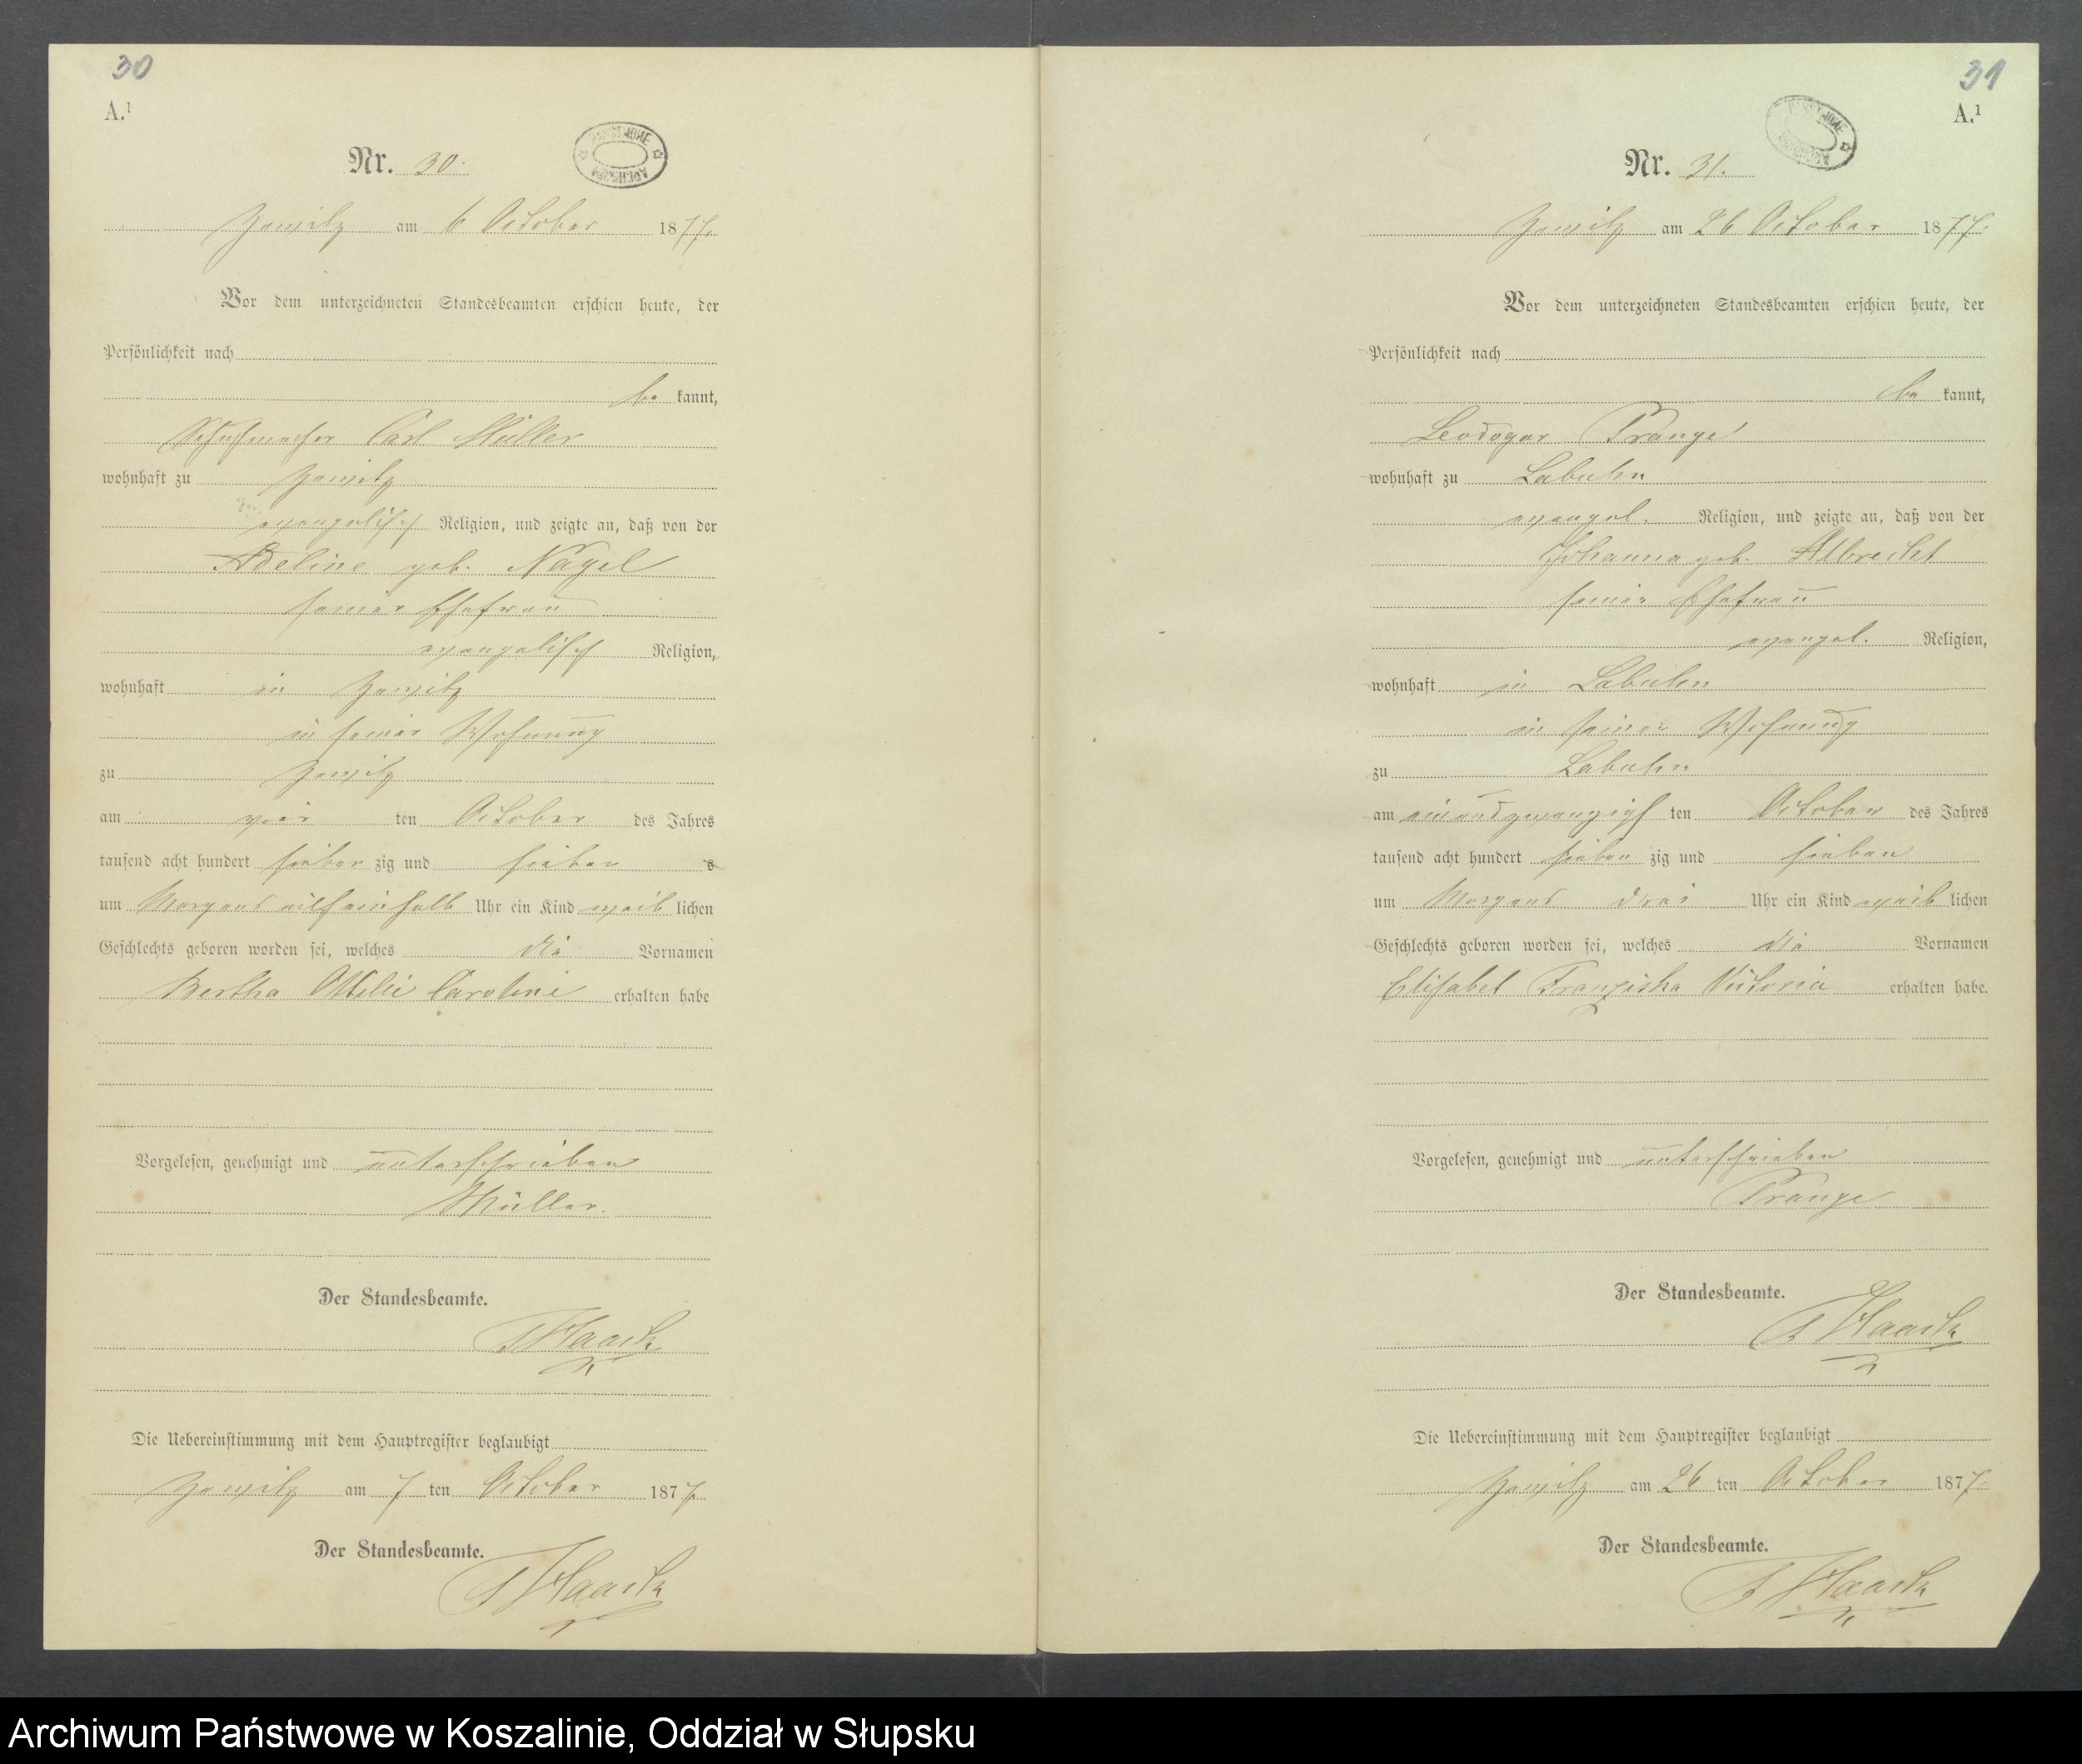 30
A.¹
Nr. 30.
Zewitz am 6 October 1877.
Vor dem unterzeichneten Standesbeamten erschien heute, der
Persönlichkeit nach
be kannt,
Schuhmacher Carl Müller
wohnhaft zu Zewitz
evangelisch Religion, und zeigte an, daß von der
Adeline geb. Nagel
seiner Ehefrau
evangelisch Religion,
wohnhaft in Zewitz
in seiner Wohnung
zu Zewitz
am vier ten October des Jahres
tausend acht hundert sieben zig und sieben
um Morgens Uhr ein Kind weib lichen
Geschlechts geboren worden sei, welches die Vornamen
Bertha Ottilie Caroline erhalten habe
Vorgelesen, genehmigt und unterschrieben
Müller.
Der Standesbeamte.
Haack
Die Uebereinstimmung mit dem Hauptregister beglaubigt
Zewitz am 7 ten October 1877.
Der Standesbeamte.
Haack
31
A.¹
Nr. 31.
Zewitz am 26 October 1877.
Vor dem unterzeichneten Standesbeamten erschien heute, der
Persönlichkeit nach
be kannt,
Leodogar Prange
wohnhaft zu Labuhn
evangel. Religion, und zeigte an, daß von der
Johanna geb. Albrecht
seiner Ehefrau
evangel. Religion,
wohnhaft in Labuhn
in seiner Wohnung
zu Labuhn
am einundzwanzigs ten October des Jahres
tausend acht hundert sieben zig und sieben
um Morgens drei Uhr ein Kind weib lichen
Geschlechts geboren worden sei, welches die Vornamen
Elisabet Franziska Victoria erhalten habe.
Vorgelesen, genehmigt und unterschrieben
Prange
Der Standesbeamte.
Haack
Die Uebereinstimmung mit dem Hauptregister beglaubigt
Zewitz am 26 ten October 1877.
Der Standesbeamte.
Haack
Archiwum Państwowe w Koszalinie, Oddział w Słupsku